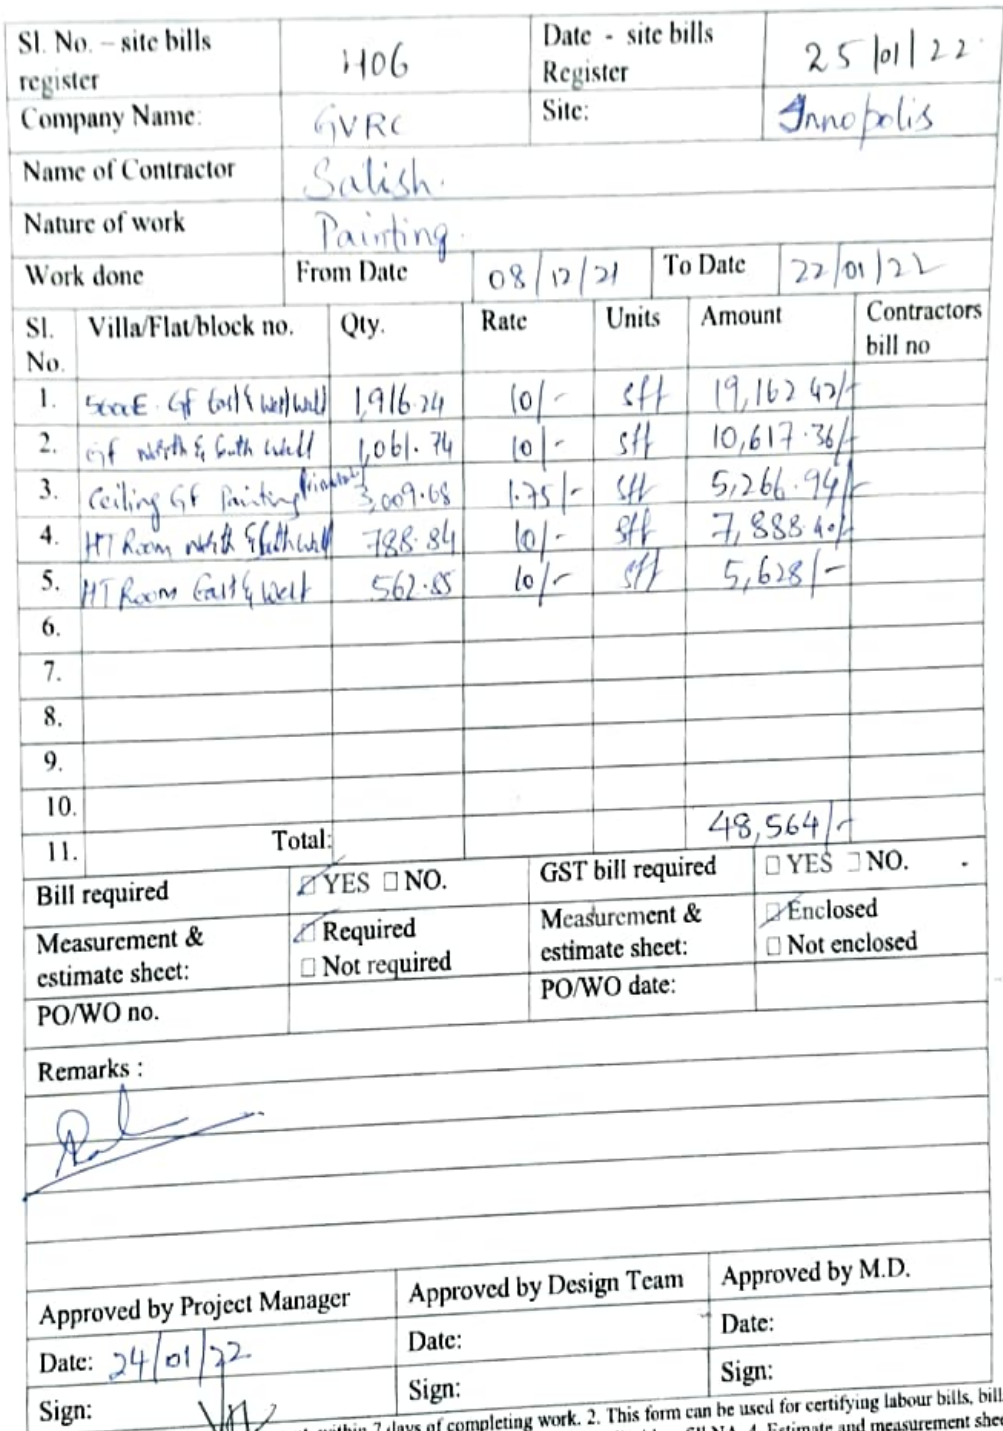 Sl. No. – site bills register 1106 Date - site bills Register 25/01/22
Company Name: GVRC Site: Innopolis
Name of Contractor Satish.
Nature of work Painting.
Work done From Date 08/12/21 To Date 22/01/22
Sl. No. Villa/Flat/block no. Qty. Rate Units Amount Contractors bill no
1. GF East & West Wall 1,916.24 10/- sft 19,162.42/-
2. GF North & South Wall 1,061.74 10/- sft 10,617.36/-
3. Ceiling GF Painting 3,009.68 1.75/- sft 5,266.94/-
4. HT Room North & South Wall 788.84 10/- sft 7,888.40/-
5. HT Room East & West 562.85 10/- sft 5,628/-
6.
7.
8.
9.
10.
11. Total: 48,564/-
Bill required YES NO. GST bill required YES NO.
Measurement & estimate sheet: Required Not required Measurement & estimate sheet: Enclosed Not enclosed
PO/WO no. PO/WO date:
Remarks :
Approved by Project Manager Approved by Design Team Approved by M.D.
Date: 24/01/22 Date: Date:
Sign: Sign: Sign:
within 7 days of completing work. 2. This form can be used for certifying labour bills, bill
4. Estimate and measurement shee